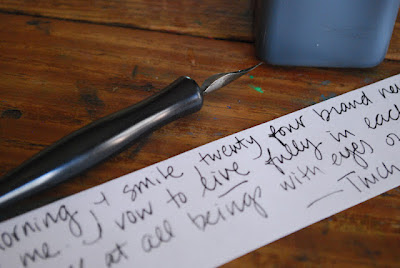 morning, I smile twenty four brand new
me. I vow to live fully in each
at all beings with eyes o
— Thich